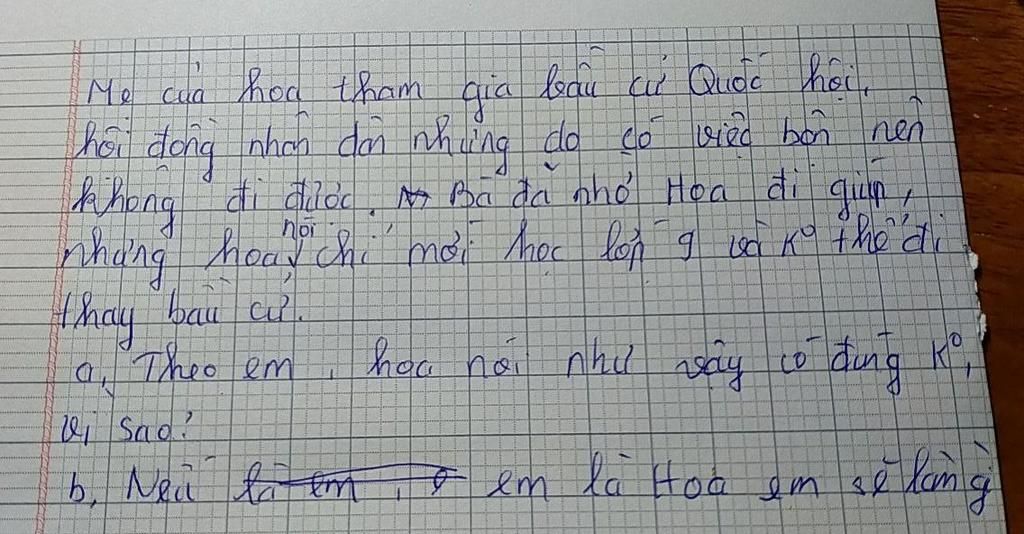 Mẹ của hoa tham gia bầu cử Quốc hội,
hội đồng nhân dân nhưng do có việc bận nên
không đi được. Bà đã nhờ Hoa đi giúp,
nhưng hoa nói chỉ mới học lớp 9 và K⁰ thể đi
thay bầu cử.
a, Theo em, hoa nói như vậy có đúng K⁰,
vì sao?
b, Nếu em là Hoa em sẽ làm gì